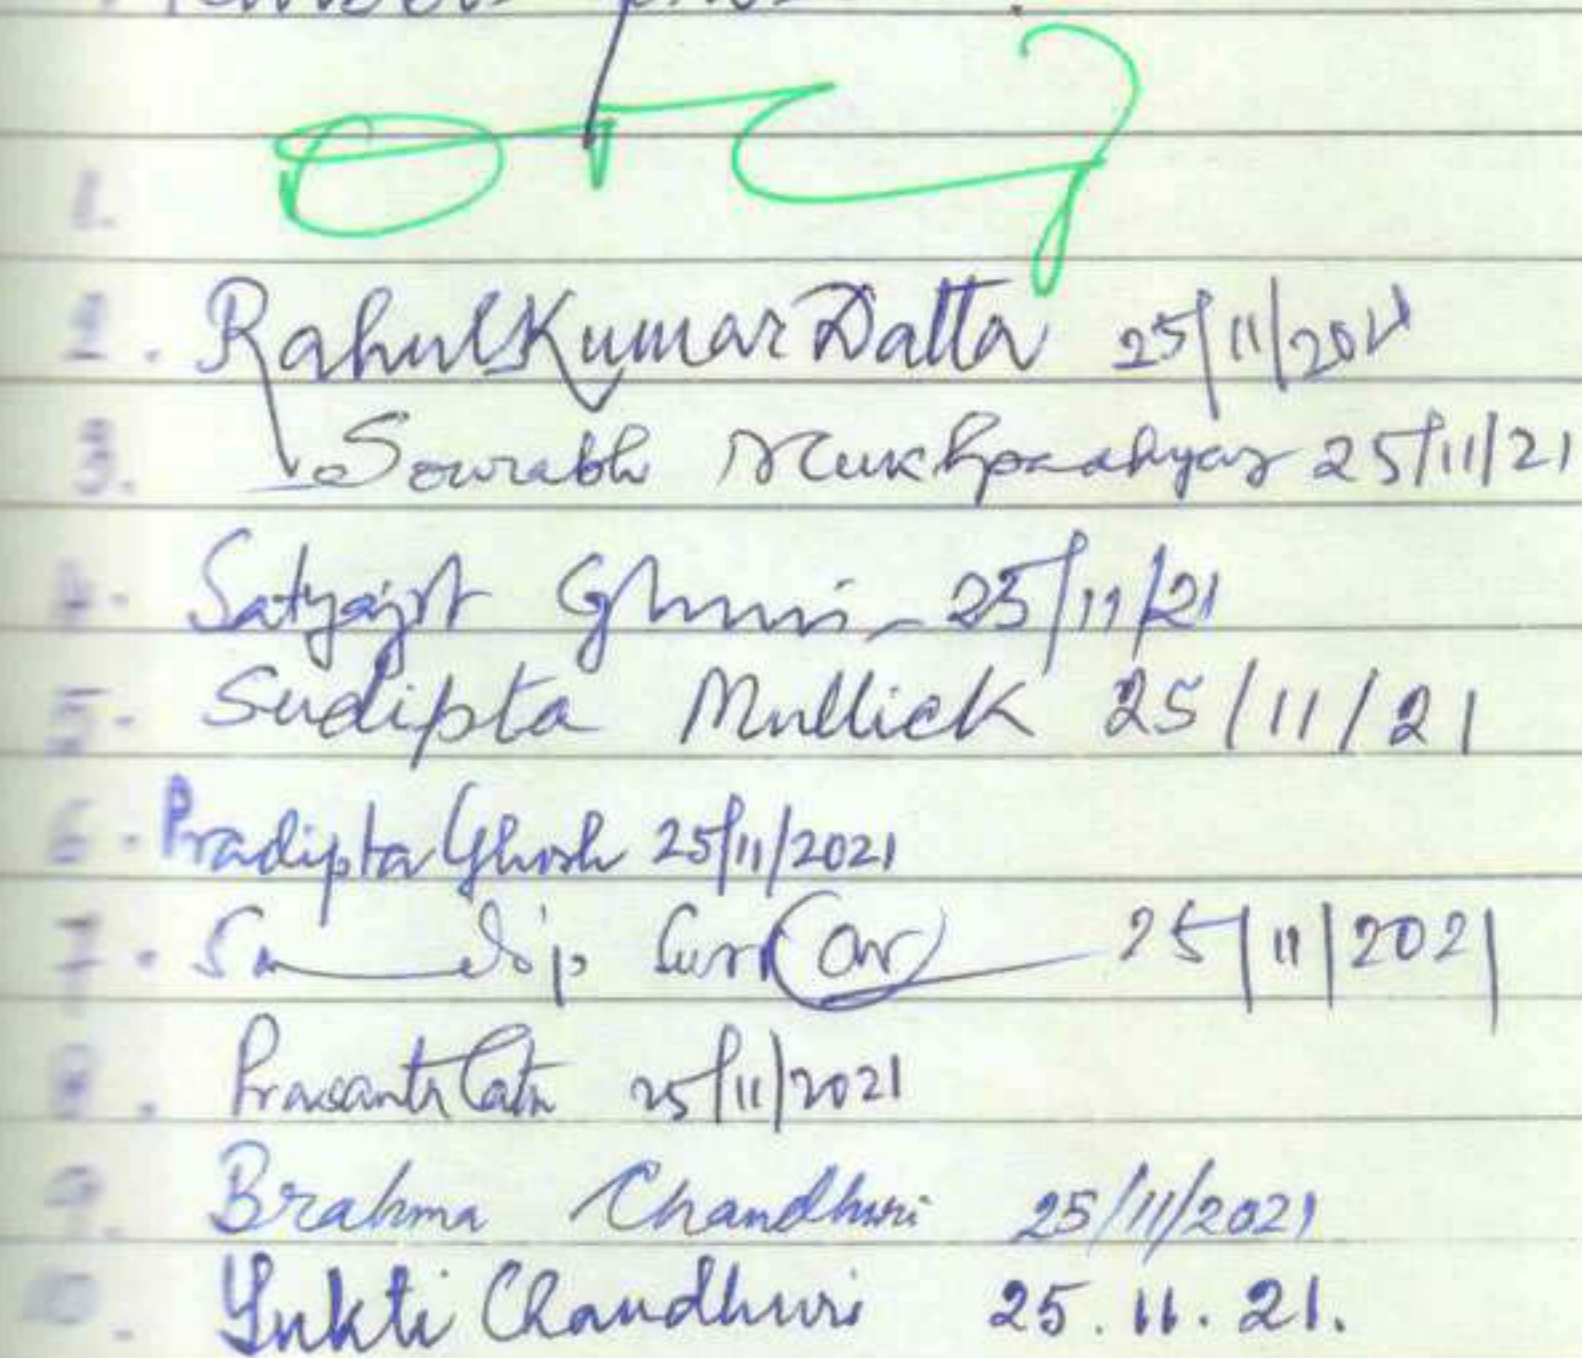 Members
2. Rahul Kumar Datta 25/11/2021
3. Sourabh Mukhpaadhyay 25/11/21
4. Satyajit 25/11/21
5. Sudipta Mullick 25/11/21
6. Pradipta Ghosh 25/11/2021
7. Sandip Sarkar 25/11/2021
8. Prasanta 25/11/2021
9. Brahma Chaudhuri 25/11/2021
10. Yukti Chaudhuri 25.11.21.